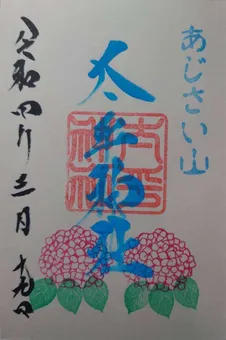 あじさい山
太平神社
令和四年三月十九日